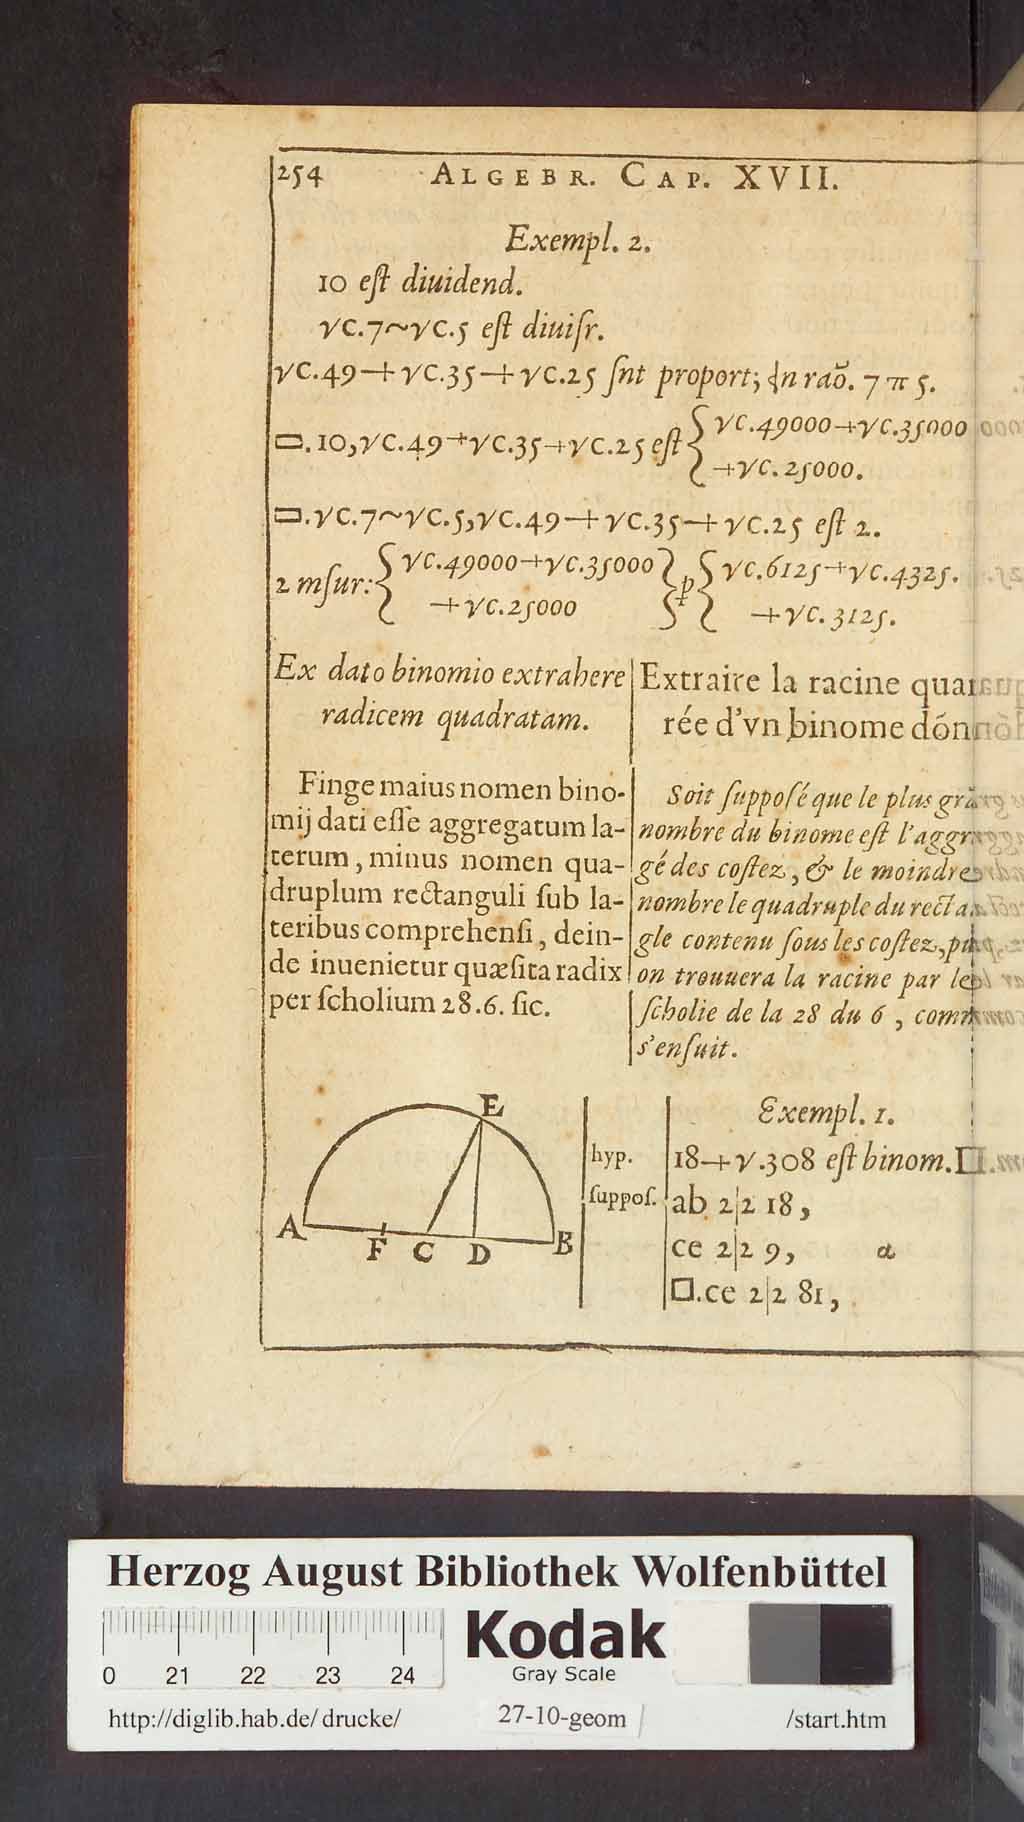 254 ALGEBR. CAP. XVII.
Exempl. 2.
10 eſt diuidend.
√C.7~√C.5 eſt diuiſr.
√C.49+√C.35+√C.25 ſnt proport; in raõ. 7 π 5.
▭.10,√C.49+√C.35+√C.25 eſt { √C.49000+√C.35000
+√C.25000.
▭.√C.7~√C.5,√C.49+√C.35+√C.25 eſt 2.
2 mſur: { √C.49000+√C.35000 } p { √C.6125+√C.4325.
+√C.25000 +√C.3125.
Ex dato binomio extrahere
radicem quadratam.
Finge maius nomen bino-
mij dati eſſe aggregatum la-
terum, minus nomen qua-
druplum rectanguli ſub la-
teribus comprehenſi, dein-
de inuenietur quæſita radix
per ſcholium 28.6. ſic.
Extraire la racine quar
rée d'vn binome dón
Soit ſuppoſé que le plus grãd
nombre du binome eſt l'aggr
gé des coſtez, & le moindre
nombre le quadruple du recta
gle contenu ſous les coſtez, puis
on trouuera la racine par le
ſcholie de la 28 du 6, comm
s'enſuit.
A F C D B E
Exempl. 1.
hyp. 18+√.308 eſt binom.□.
ſuppoſ. ab 2|2 18,
ce 2|2 9, a
□.ce 2|2 81,
Herzog August Bibliothek Wolfenbüttel
Kodak
Gray Scale
0 21 22 23 24
http://diglib.hab.de/drucke/ 27-10-geom /start.htm